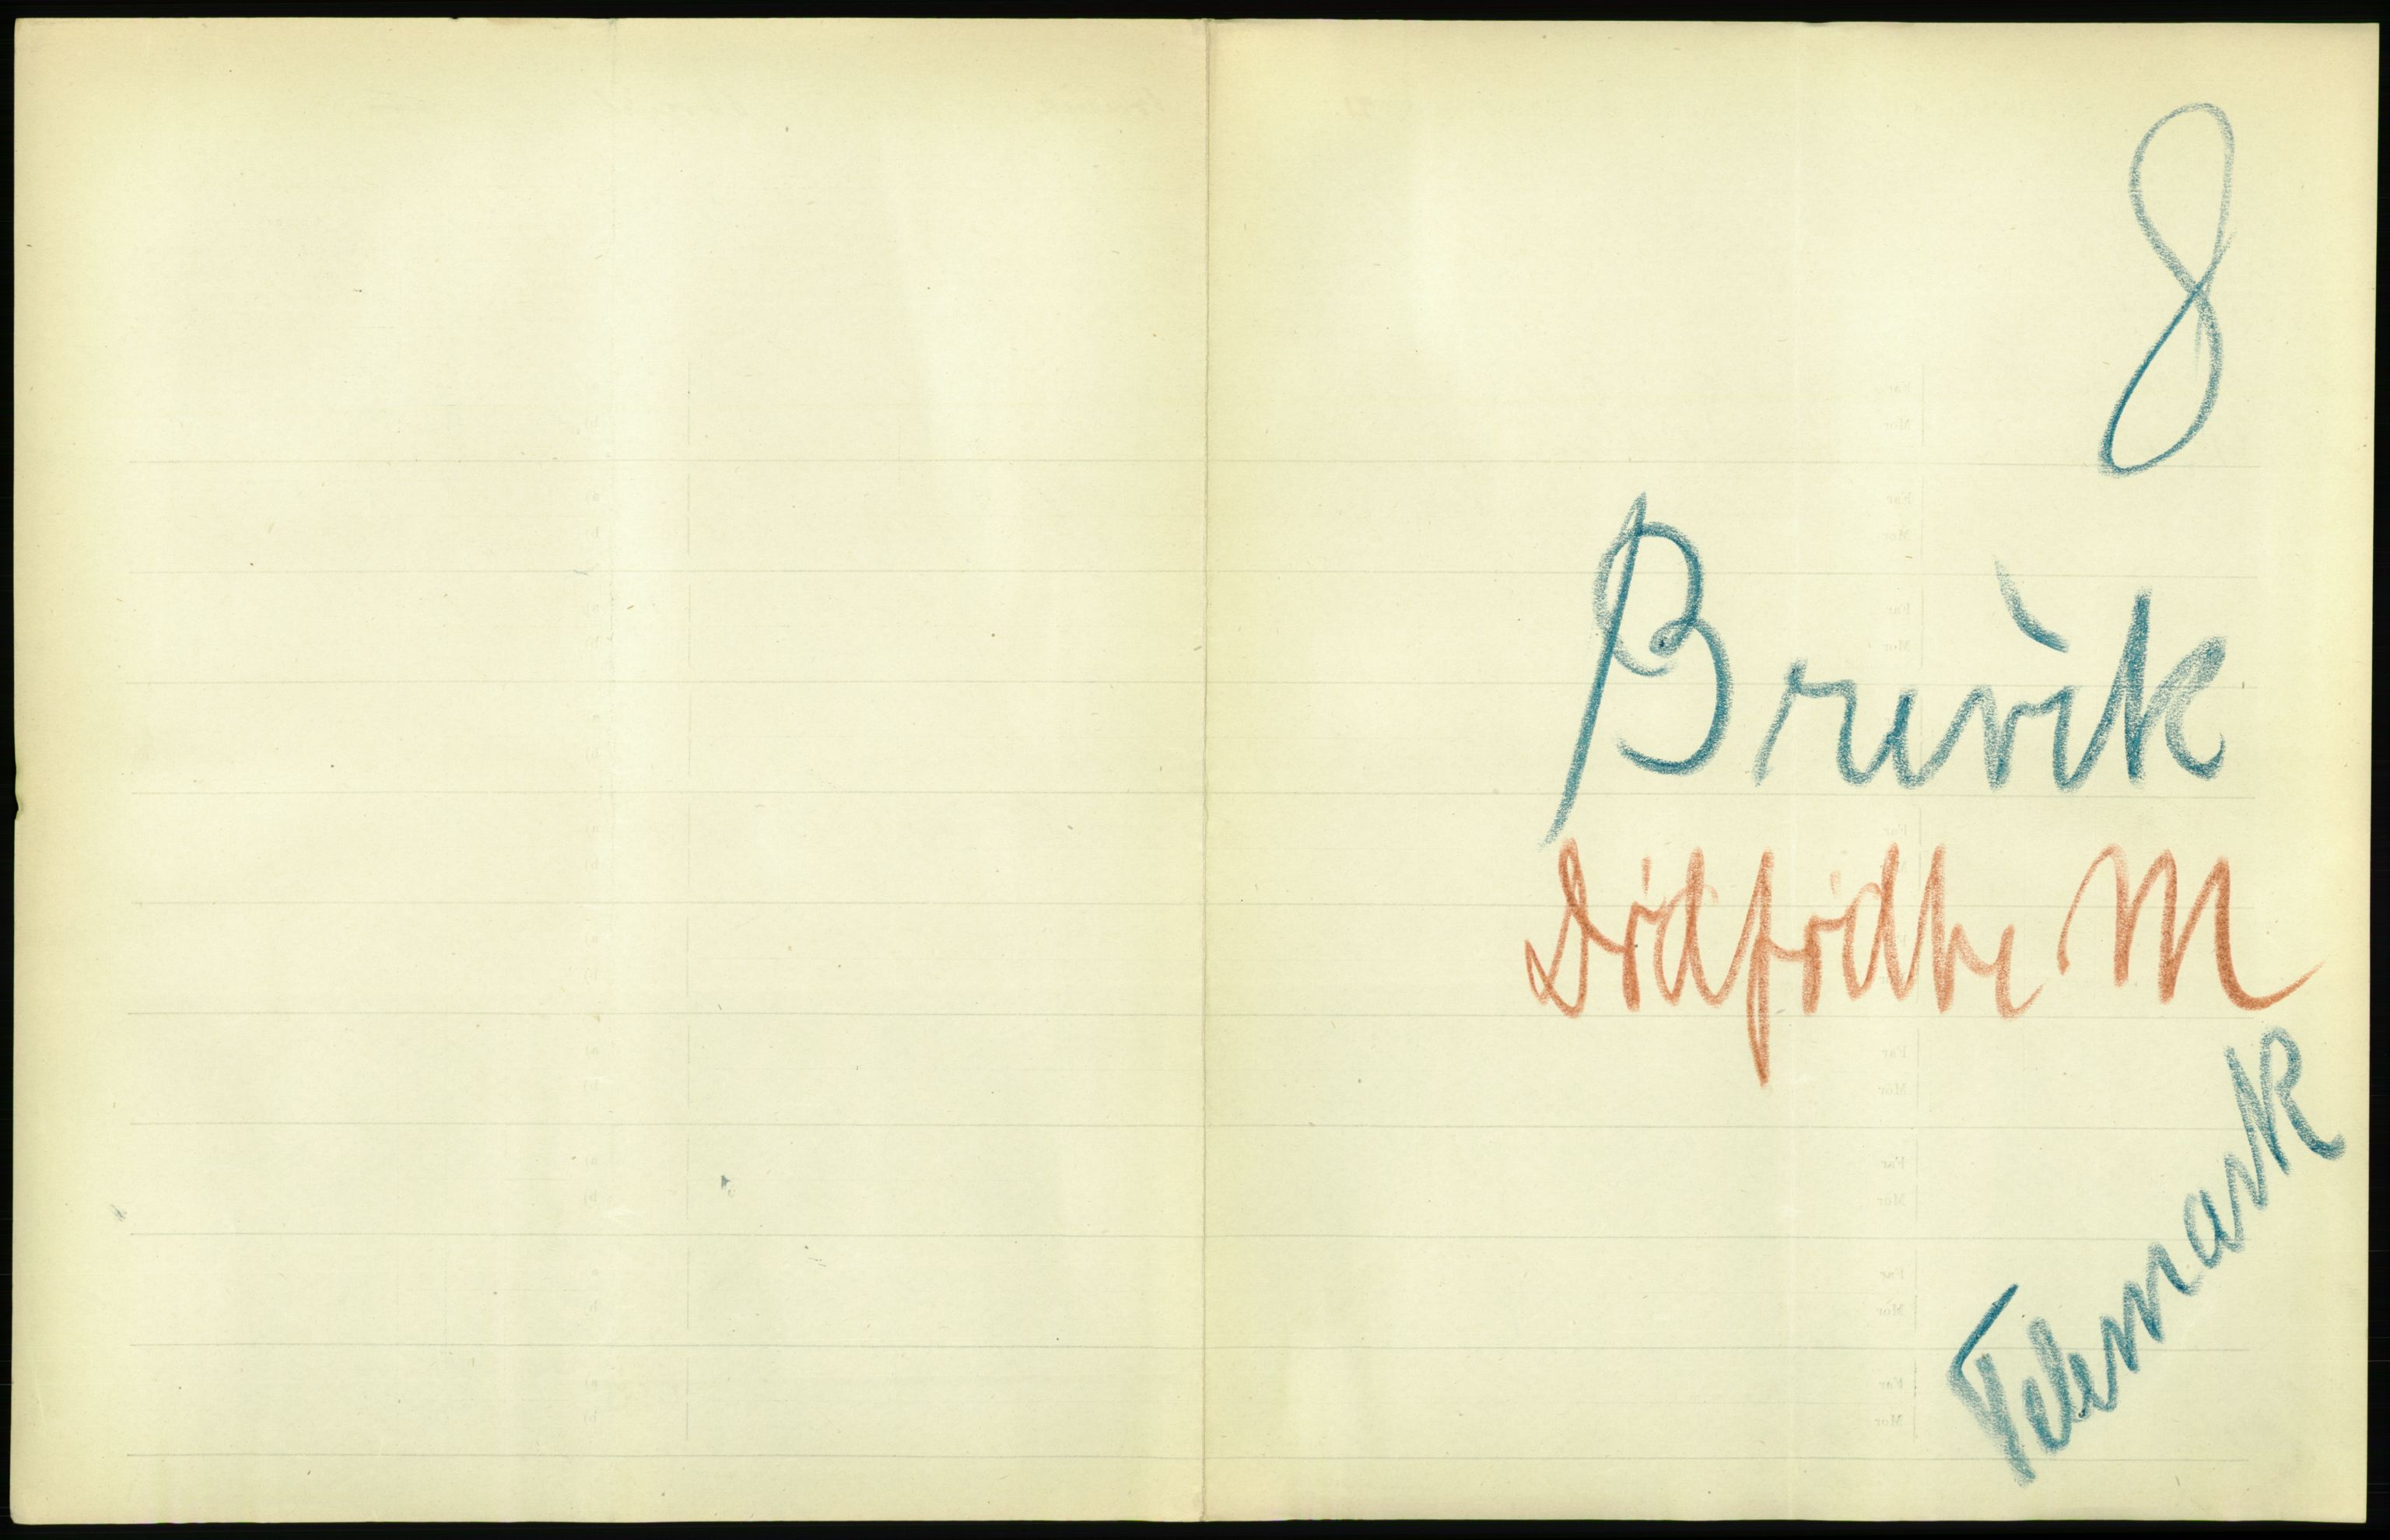 8
Brevik
Dødfødte M
Telemark